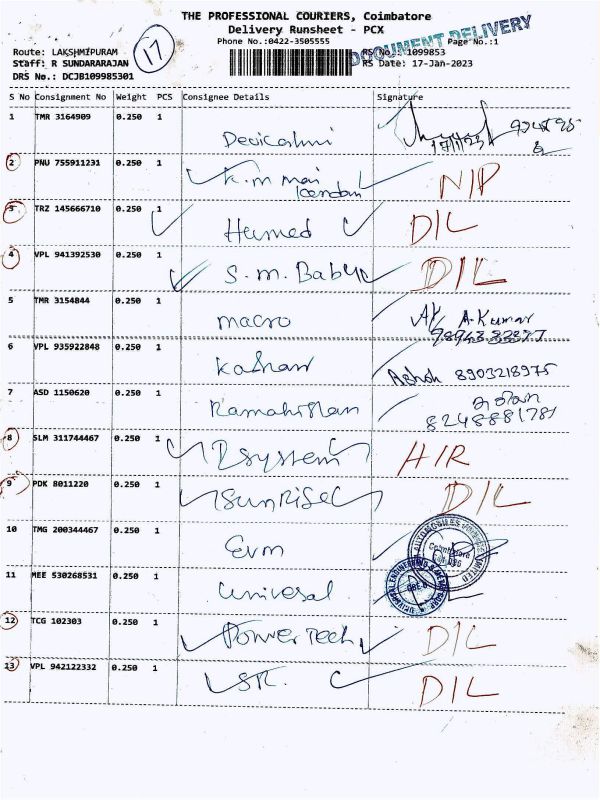 THE PROFESSIONAL COURIERS, Coimbatore
Delivery Runsheet - PCX
Phone No.:0422-3505555
DOCUMENT DELIVERY
Page No.:1
Route: LAKSHMIPURAM
17
RS No.:1099853
Staff: R SUNDARARAJAN
RS Date: 17-Jan-2023
DRS No.: DCJB109985301
S No Consignment No Weight PCS Consignee Details Signature
1 TMR 3164909 0.250 1 Devicashmi 17/1/23
2 PNU 755911231 0.250 1 K.m mai N/P
3 TRZ 145666710 0.250 1 Hamed D/L
4 VPL 941392530 0.250 1 S.m.Baby D/L
5 TMR 3154844 0.250 1 macro A.Kumar
6 VPL 935922848 0.250 1 Ashok 8903218975
7 ASD 1150620 0.250 1
8248881781
8 SLM 311744467 0.250 1 Rsystem H/R
9 PDK 8011220 0.250 1 Sunrise D/L
10 TMG 200344467 0.250 1 Evm Coimbatore
11 MEE 530268531 0.250 1 Universal
12 TCG 102303 0.250 1 PowerTech D/L
13 VPL 942122332 0.250 1 SR. D/L